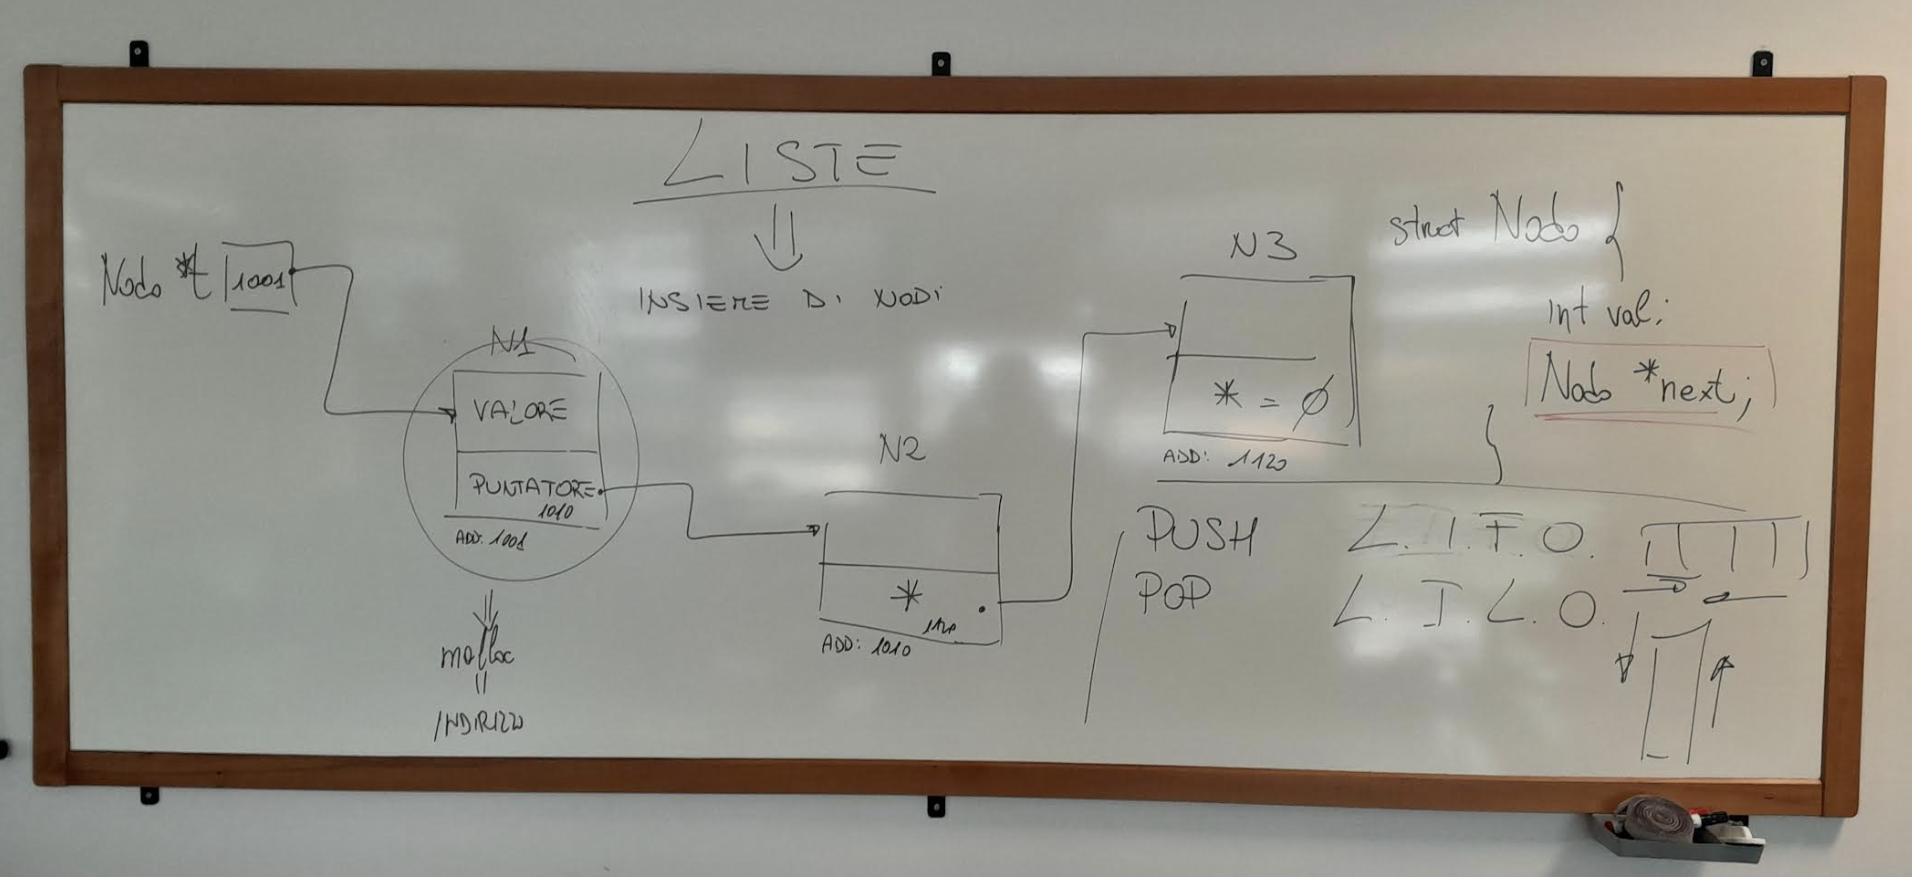 LISTE
INSIEME DI NODI
Nodo *t 1001
N1
VALORE
PUNTATORE
1010
ADD: 1001
malloc
INDIRIZZO
N2
*
1120
ADD: 1010
N3
* = ∅
ADD: 1120
struct Nodo {
int val;
Nodo *next;
}
PUSH
POP
L. I. F. O.
L. I. L. O.